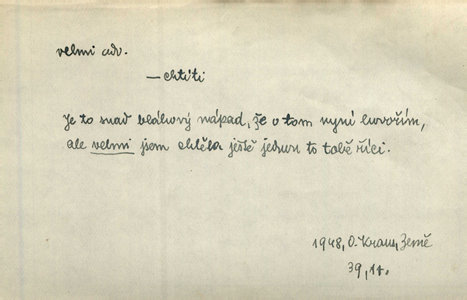 velmi adv.
— chtíti
Je to snad bláhový nápad, že o tom nyní hovořím,
ale velmi jsem chtěla ještě jednou to tobě říci.
1948, O. Kraus, Země
39, 11.